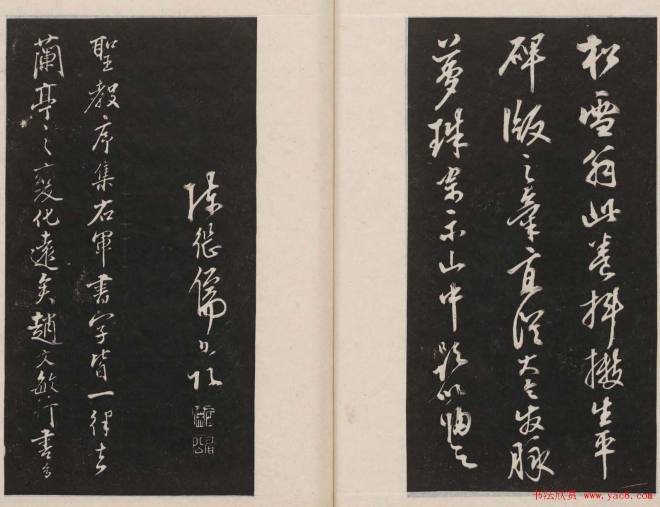 松雪翁此卷抖擻生平
碑版之氣直從大令發脉
夢珠出示山中題以歸之
陳繼儒
聖教序集右軍書字皆一律去
蘭亭之變化遠矣趙文敏行書多
书法欣赏 www.yac8.com